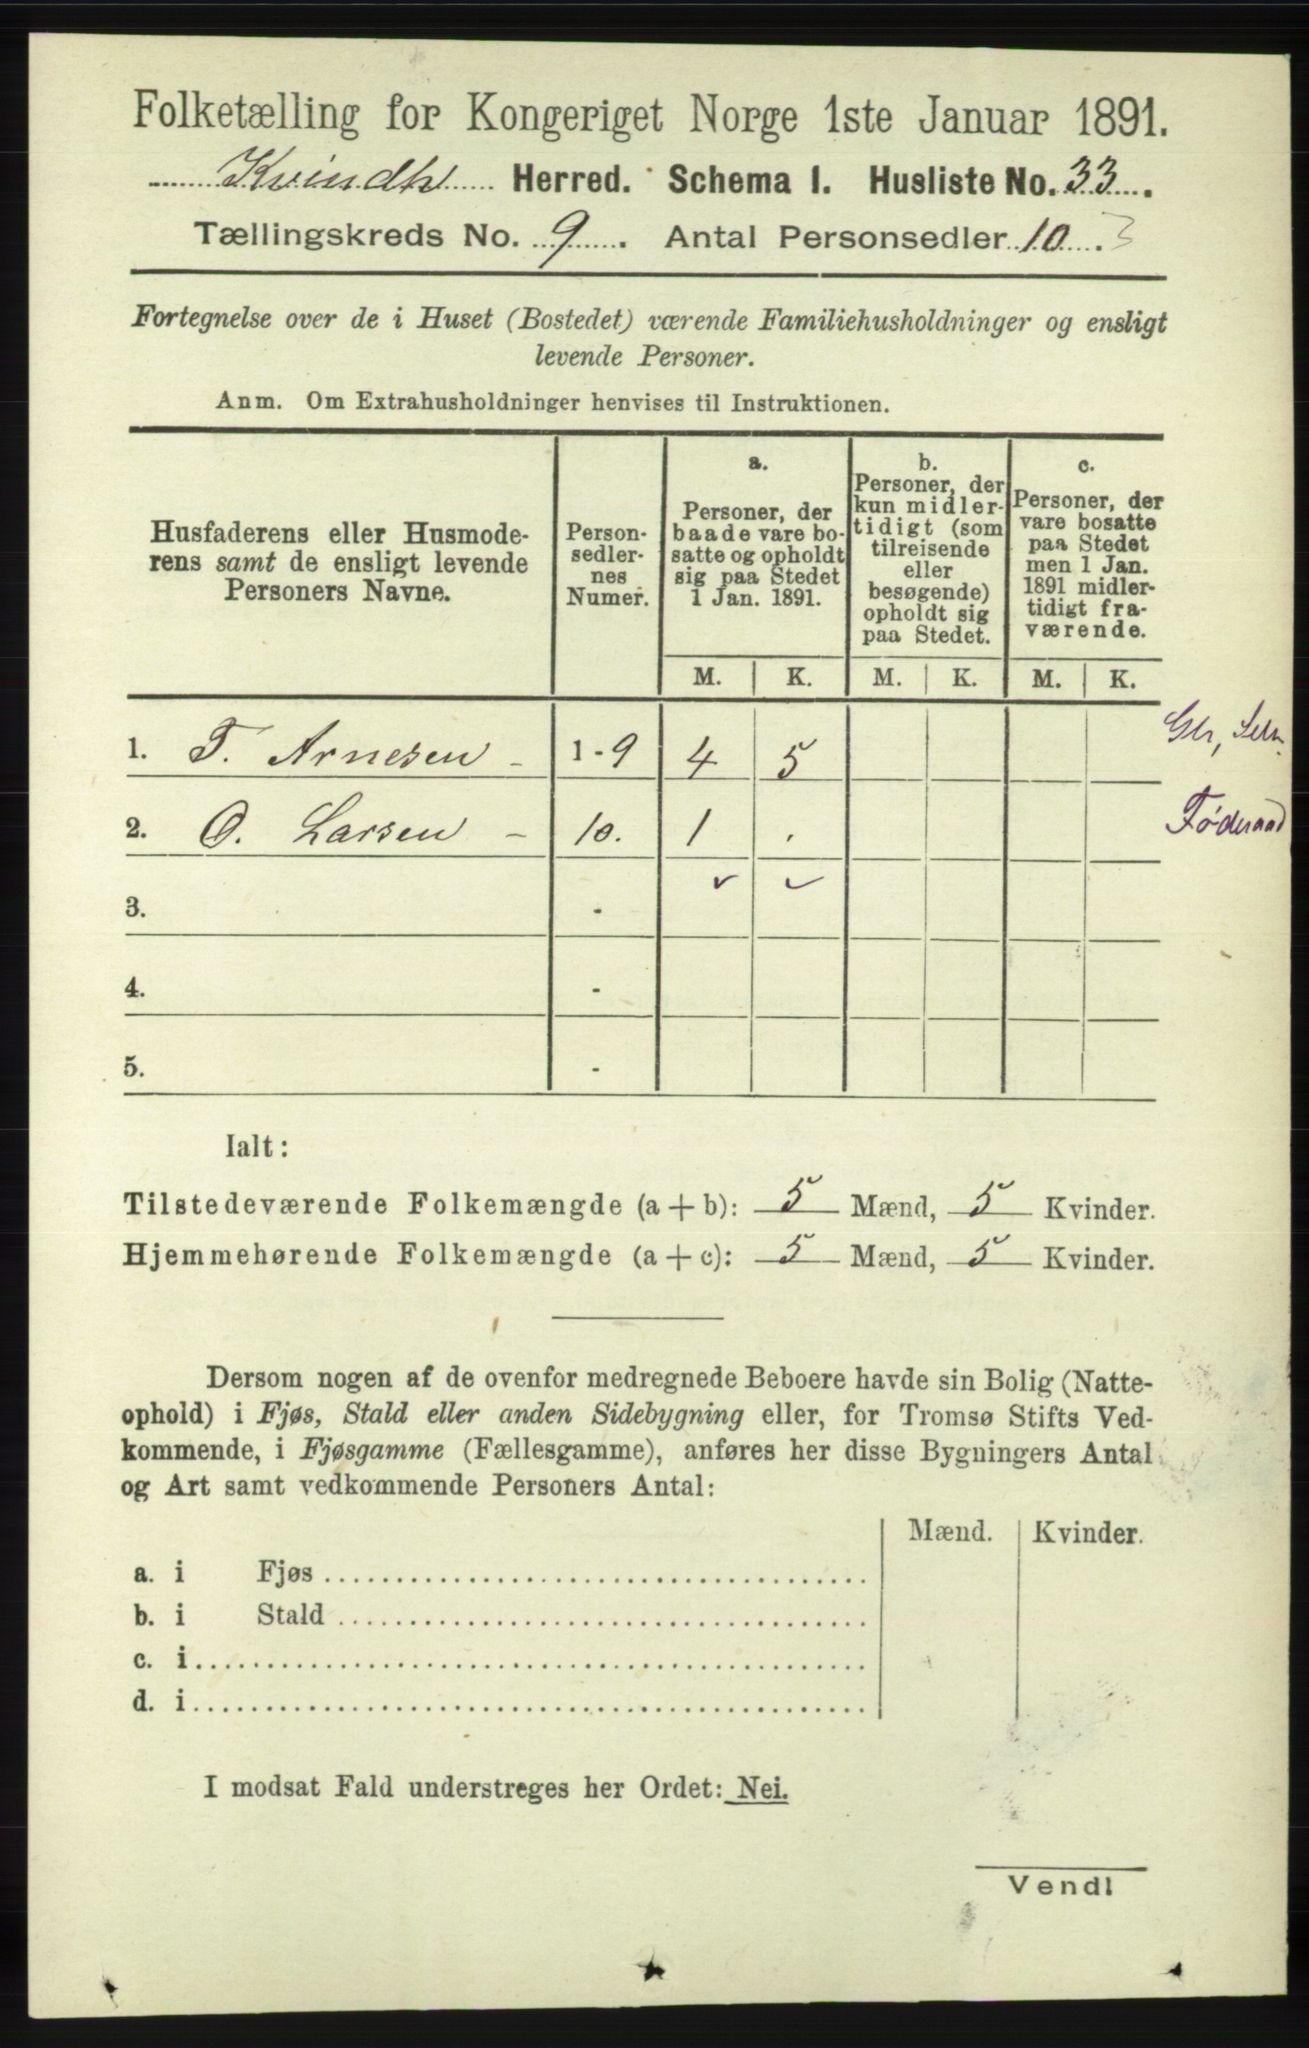 Folketælling for Kongeriget Norge 1ste Januar 1891.
Kvindh Herred. Schema I. Husliste No. 33.
Tællingskreds No. 9. Antal Personsedler 10. 3
Fortegnelse over de i Huset (Bostedet) værende Familiehusholdninger og ensligt
levende Personer.
Anm. Om Extrahusholdninger henvises til Instruktionen.
Husfaderens eller Husmode-
rens samt de ensligt levende
Personers Navne.
Person-
sedler-
nes
Numer.
a.
Personer, der
baade vare bo-
satte og opholdt
sig paa Stedet
1 Jan. 1891.
b.
Personer, der
kun midler-
tidigt (som
tilreisende
eller
besøgende)
opholdt sig
paa Stedet.
c.
Personer, der
vare bosatte
paa Stedet
men 1 Jan.
1891 midler-
tidigt fra-
værende.
M. K. M. K. M. K.
1. T. Arnesen - 1-9 4 5
2. O. Larsen - 10. 1 . Føderaad
3. -
4. -
5. -
Ialt:
Tilstedeværende Folkemængde (a+b): 5 Mænd, 5 Kvinder.
Hjemmehørende Folkemængde (a+c): 5 Mænd, 5 Kvinder.
Dersom nogen af de ovenfor medregnede Beboere havde sin Bolig (Natte-
ophold) i Fjøs, Stald eller anden Sidebygning eller, for Tromsø Stifts Ved-
kommende, i Fjøsgamme (Fællesgamme), anføres her disse Bygningers Antal
og Art samt vedkommende Personers Antal:
Mænd. Kvinder.
a. i Fjøs
b. i Stald
c. i
d. i
I modsat Fald understreges her Ordet: Nei.
Vend!